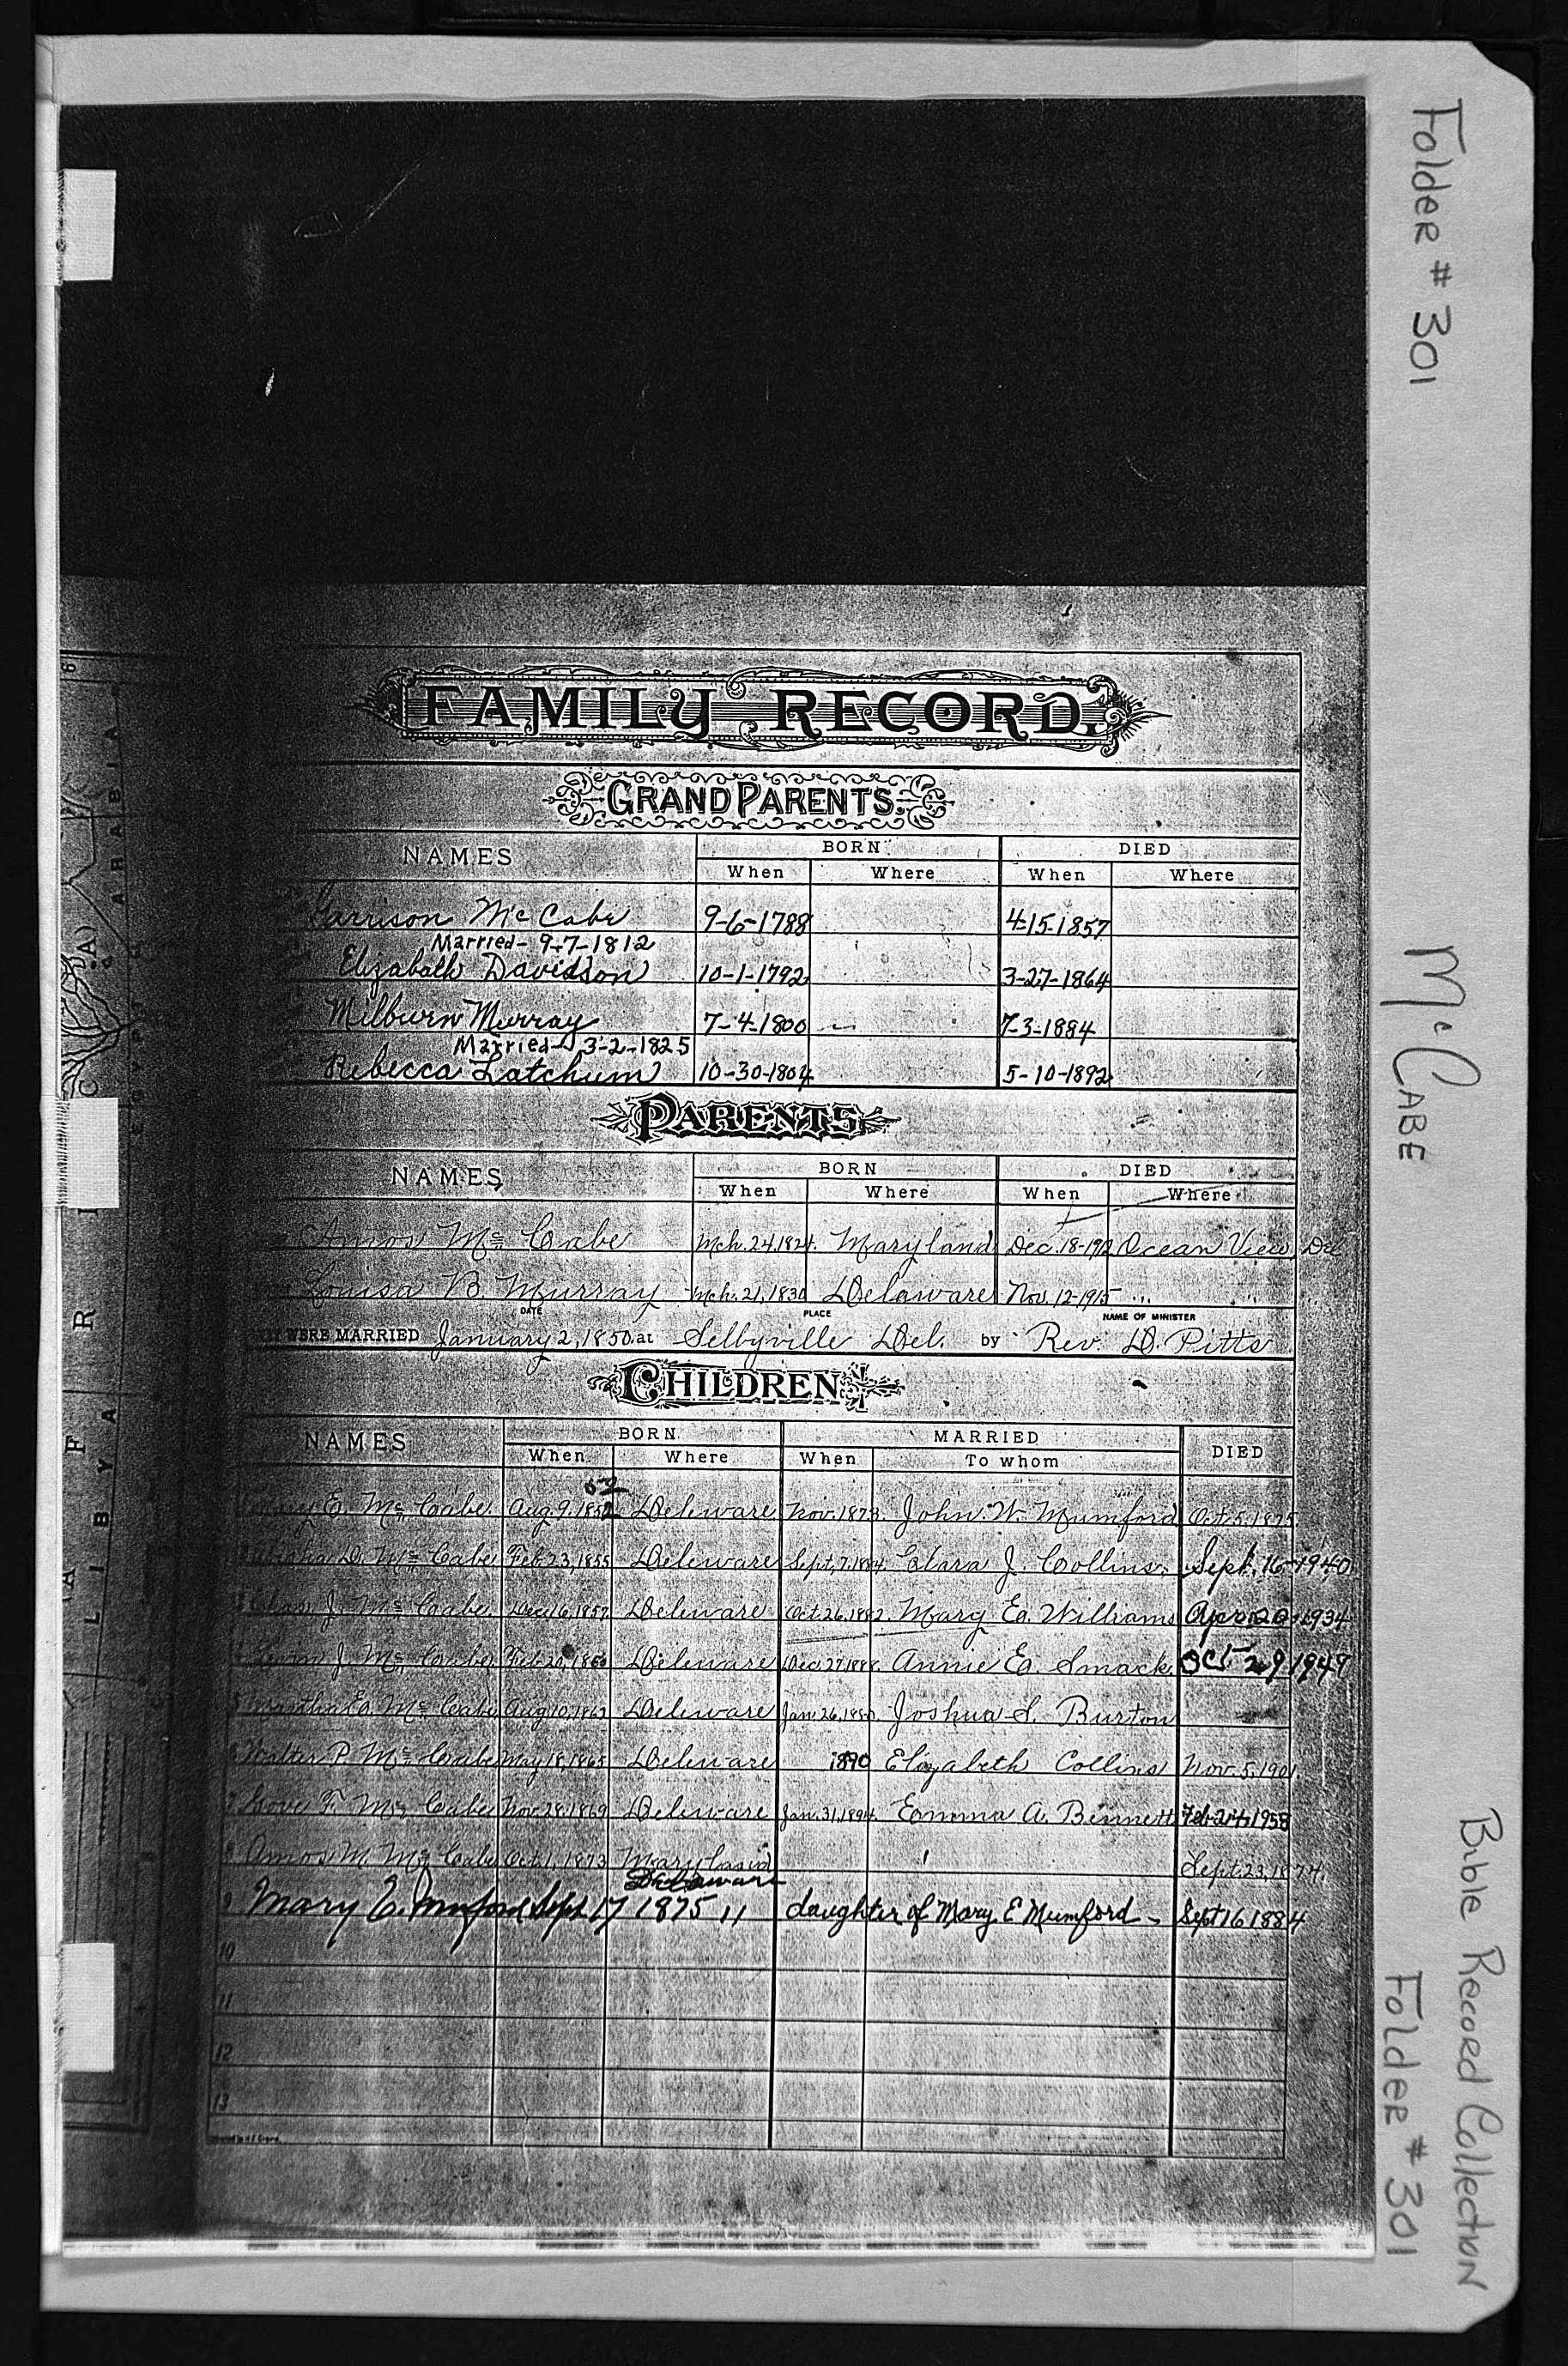 Folder # 301
McCabe
Bible Record Collection
Folder # 301
FAMILY RECORD.
GRANDPARENTS.
NAMES BORN DIED
When Where When Where
Garrison McCabe 9-6-1788 4-15-1857
Married- 9-7-1812
Elizabeth Davidson 10-1-1792 3-27-1864
Milburn Murray 7-4-1800 7-3-1884
Married- 3-2-1825
Rebecca Latchum 10-30-1804 5-10-1892
PARENTS.
NAMES BORN DIED
When Where When Where
Amos McCabe Mch. 24, 1824. Maryland Dec. 18-191 Ocean View, Del
Louisa B. Murray Mch. 21, 1830 Delaware Nov. 12-1915 " "
DATE PLACE NAME OF MINISTER
WERE MARRIED January 2, 1850 at Selbyville Del. by Rev. D. Pitts
CHILDREN
NAMES BORN MARRIED DIED
When Where When To whom
52
E. McCabe Aug. 9, 1852 Deleware Nov. 1873. John W. Mumford Oct. 5, 1875
D. McCabe Feb. 23, 1855 Deleware Sept. 7, 1884. Clara J. Collins. Sept. 16-1940
J. McCabe Dec. 16, 1857 Deleware Oct. 26, 1882. Mary E. Williams Apr. 20-1934
J. McCabe Feb. 20, 1860 Deleware Dec. 27, 1888. Annie E. Smack. Oct 29 1949
5 E. McCabe Aug. 10, 1862 Deleware Jan. 26, Joshua S. Burton
6 Walter P. McCabe May 18, 1865 Deleware 1890 Elizabeth Collins Nov. 5, 1901
7 Gove F. McCabe Nov. 28, 1869 Deleware Jan. 31, 1894. Emma A. Bennett Feb-24-1958
8 Amos M. McCabe Oct. 1, 1873 Maryland Sept. 23, 1874.
Delaware
9 Mary E. Mumford Sept 17 1875 " daughter of Mary E Mumford - Sept 16 1884
10
11
12
13
A F R I C (A)
L I B Y A
E G Y P T
A R A B I A